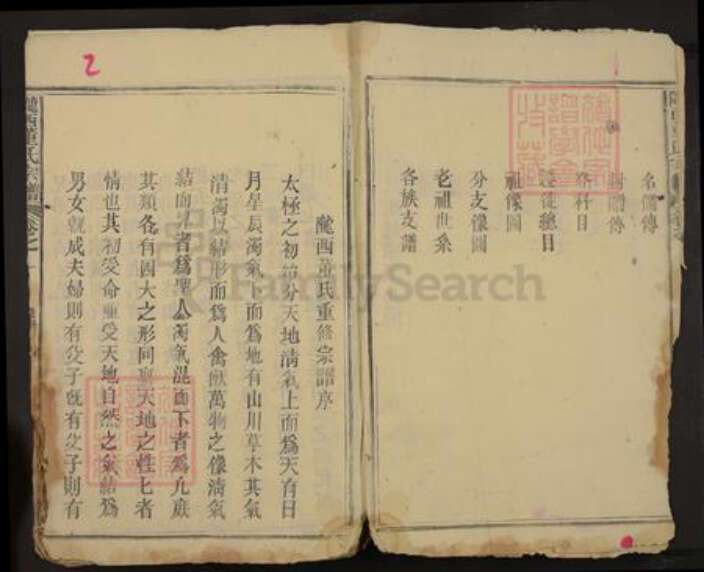 名儒傳
傳
科目
遷徙總目
祖像圖
分支像圖
老祖世系
各族支譜
隴西董氏重修宗譜序
太極之初始分天地清氣上而爲天有日
月星辰濁氣下而爲地有山川草木其氣
清濁以結形而爲人禽獸萬物之像清氣
結而者爲聖人濁氣混而下者爲凡庶
其類各有四大之形同稟天地之性七者
情也其初受命重受天地自然之氣結爲
男女既成夫婦則有父子既有父子則有
隴西董氏宗譜
2
FamilySearch